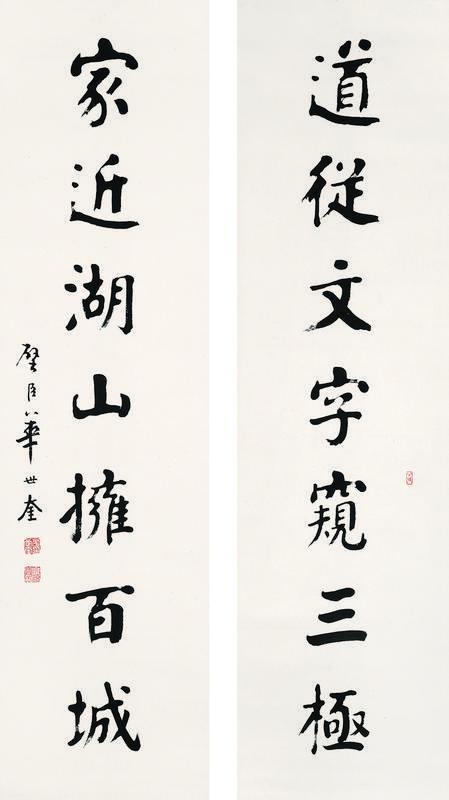 道從文字窺三極
家近湖山擁百城
璧臣華世奎